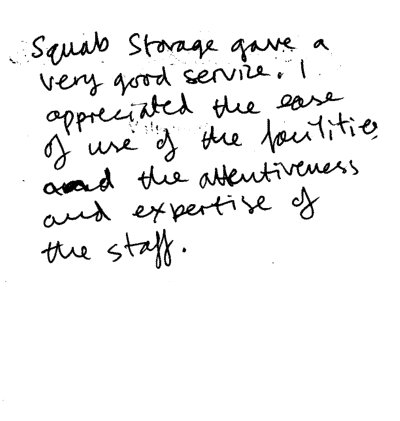 Squab Storage gave a
very good service. I
appreciated the ease
of use of the facilities
and the attentiveness
and expertise of
the staff.